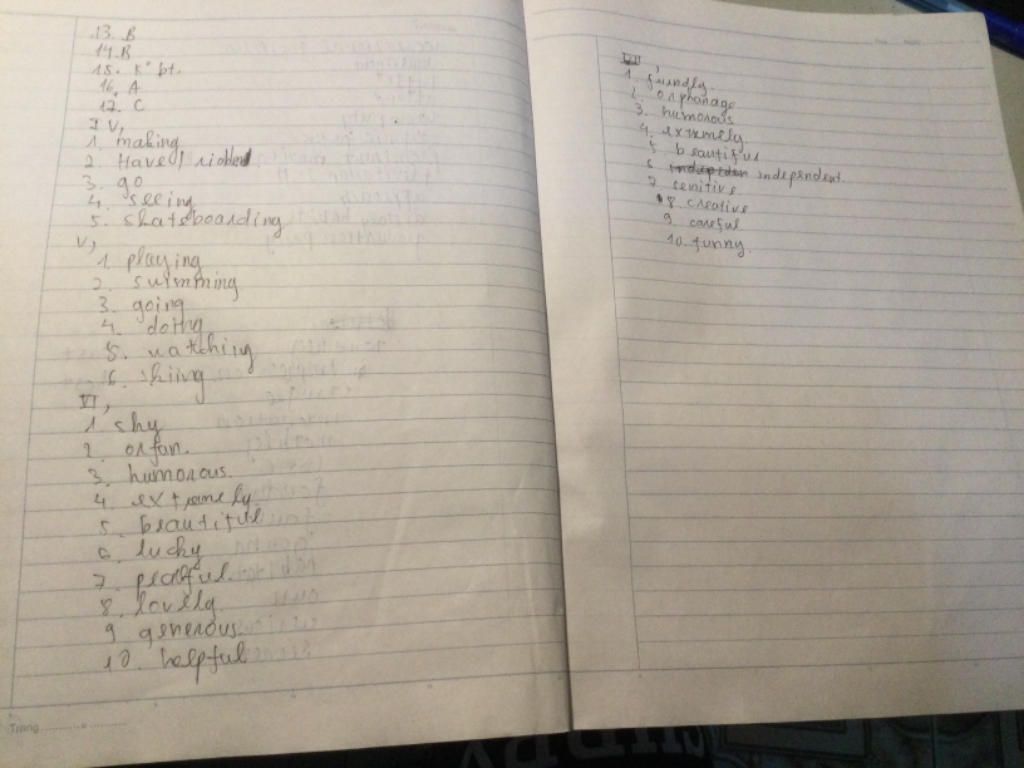 13. B
14. B
15. K° bt.
16. A
17. C
IV,
1. making
2. Have /
3. go
4. seeing
5. skateboarding
V,
1. playing
2. swimming
3. going
4. doing
5. watching
6. skiing
VI,
1. shy
2. orfan.
3. humorous.
4. extremely
5. beautiful
6. lucky
7. peaceful.
8. lovely.
9. generous.
10. helpful
Trang
VII,
1. friendly.
2. orphanage
3. humorous
4. extremely
5. beautiful
6. independent.
7. senitive
8. creative
9. careful
10. funny.